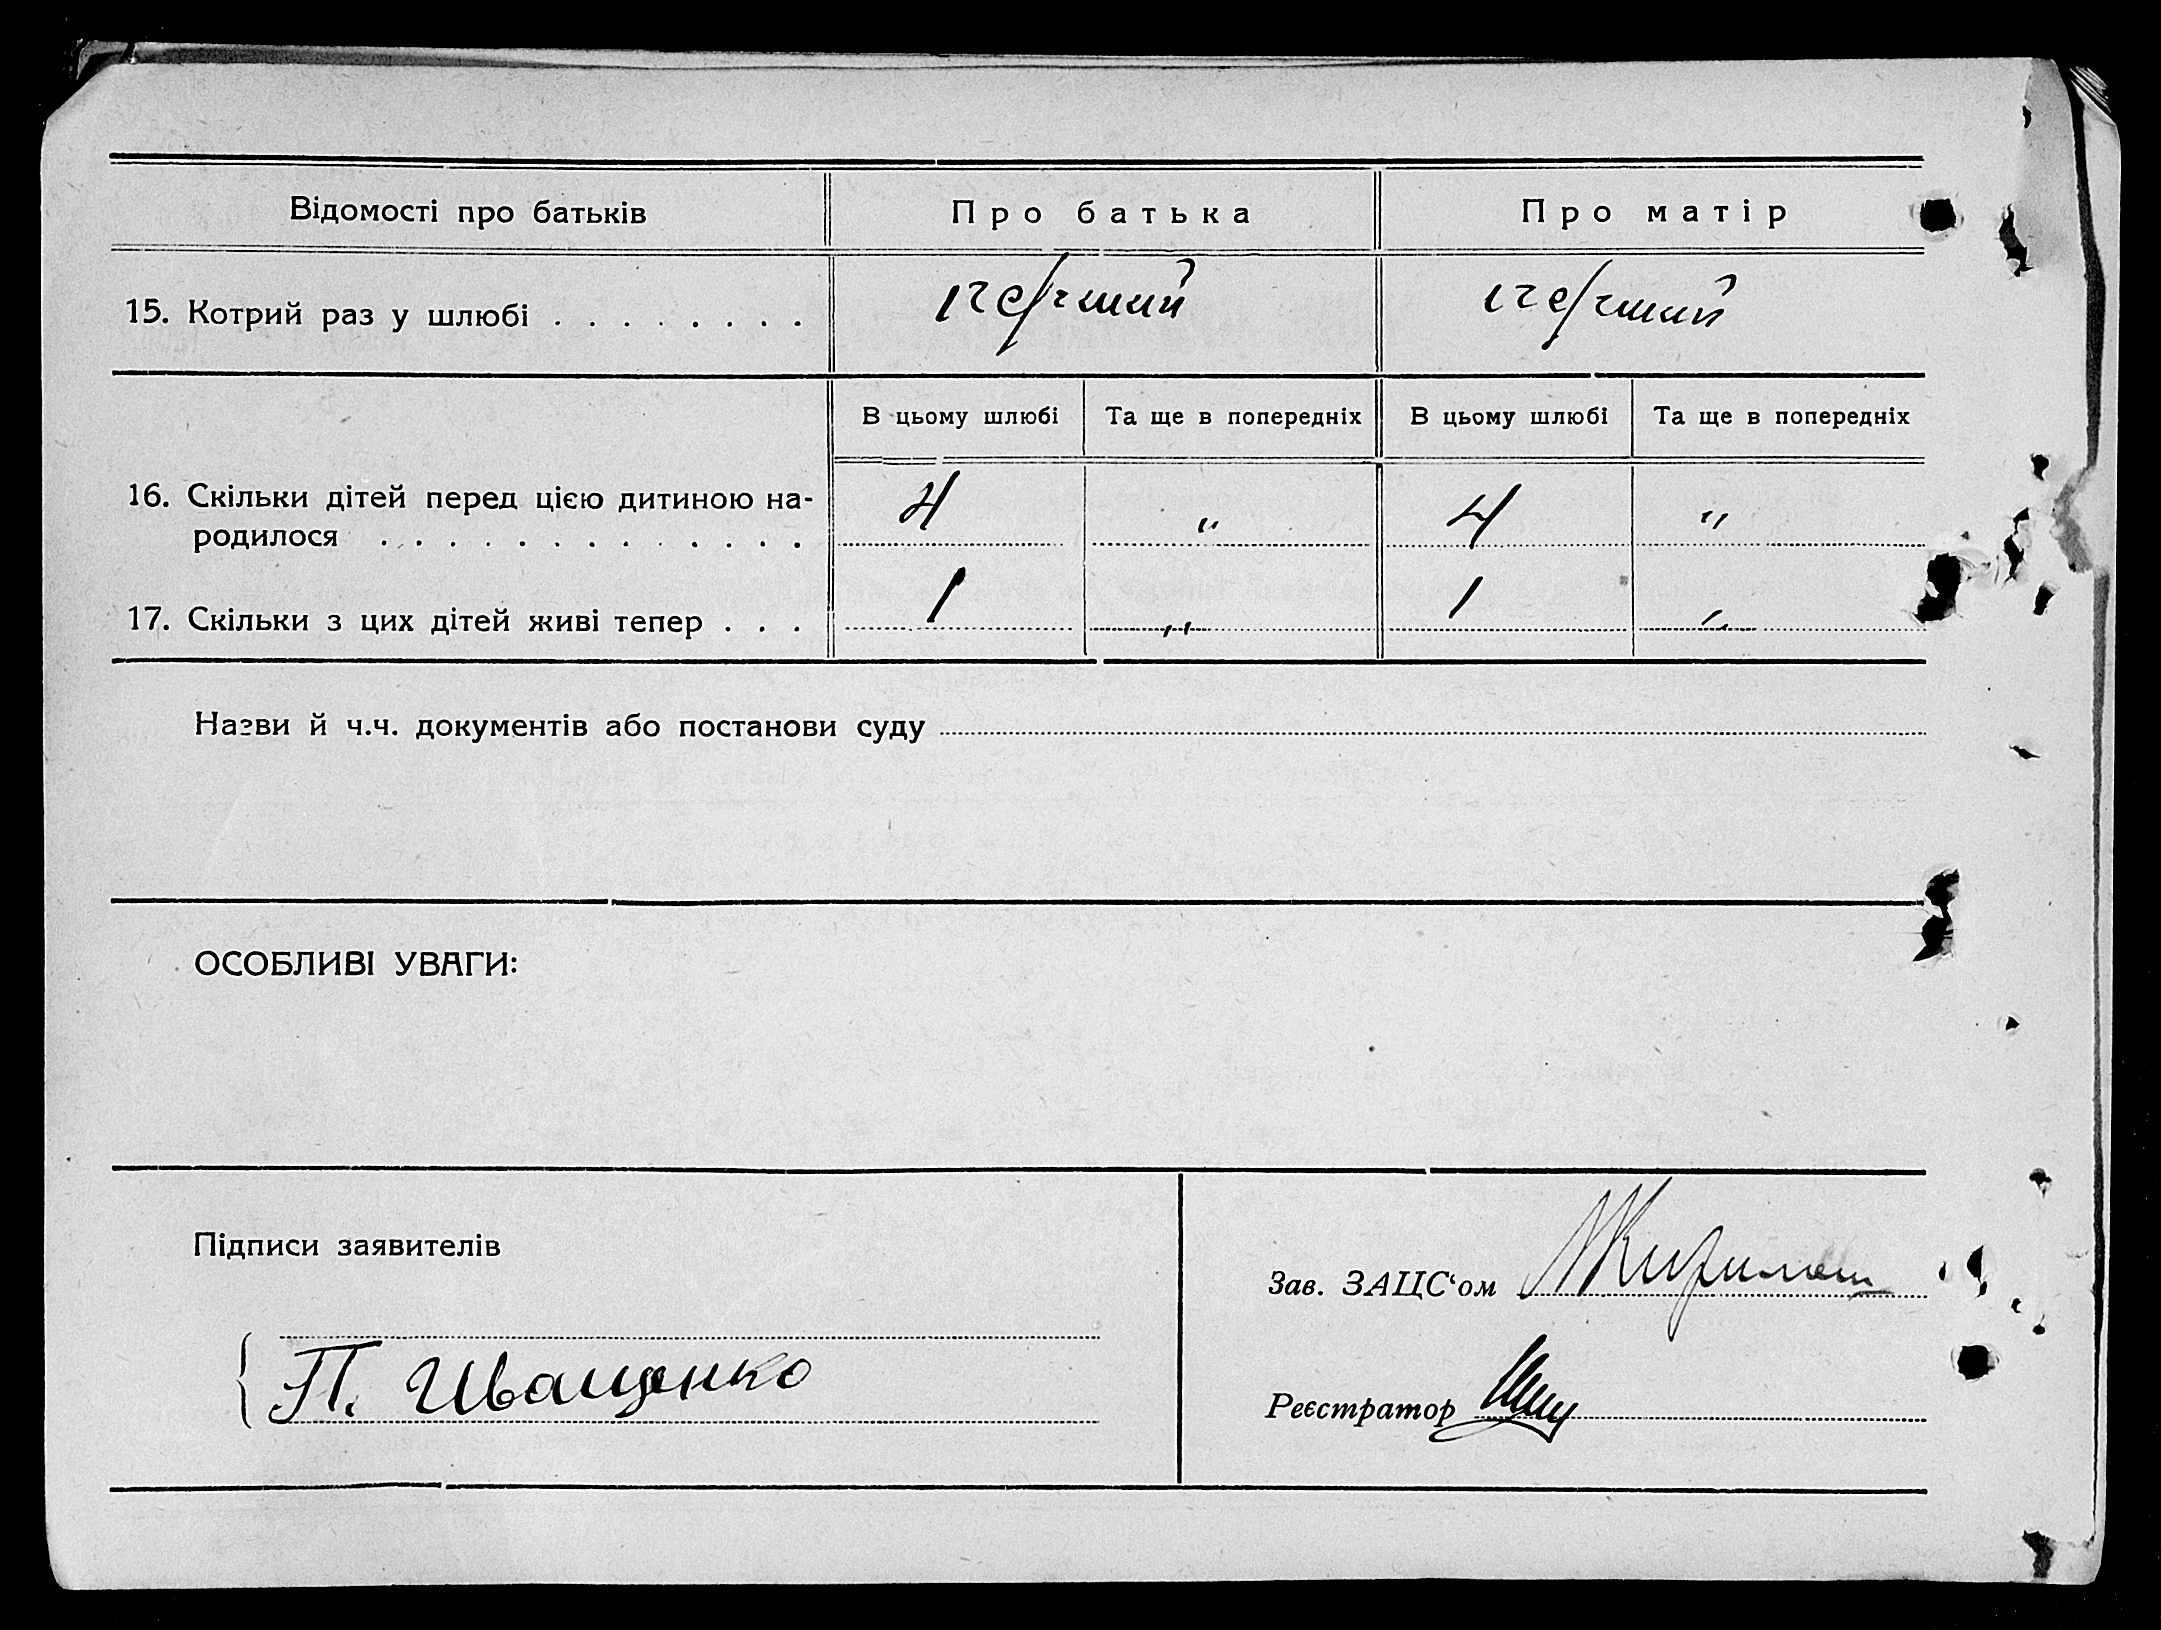 Відомості про батьків Про батька Про матір
15. Котрий раз у шлюбі . . . . . . . . перший перший
В цьому шлюбі Та ще в попередніх В цьому шлюбі Та ще в попередніх
16. Скільки дітей перед цією дитиною на-
родилося . . . . . . . . . . . . . 4 " 4 "
17. Скільки з цих дітей живі тепер . . . 1 " 1 "
Назви й ч.ч. документів або постанови суду
ОСОБЛИВІ УВАГИ:
Підписи заявителів
Зав. ЗАЦС‘ом
П. Иващенко
Реєстратор